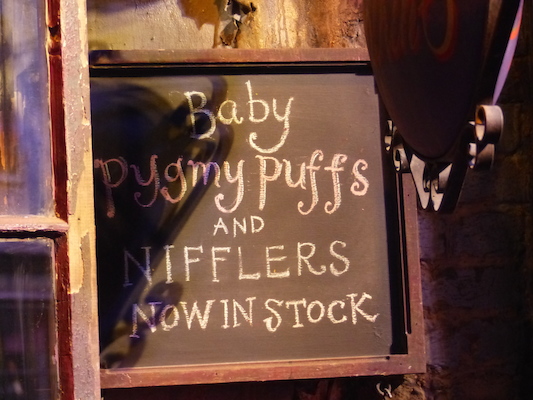 Baby
pygmy puffs
AND
NIFFLERS
NOW IN STOCK